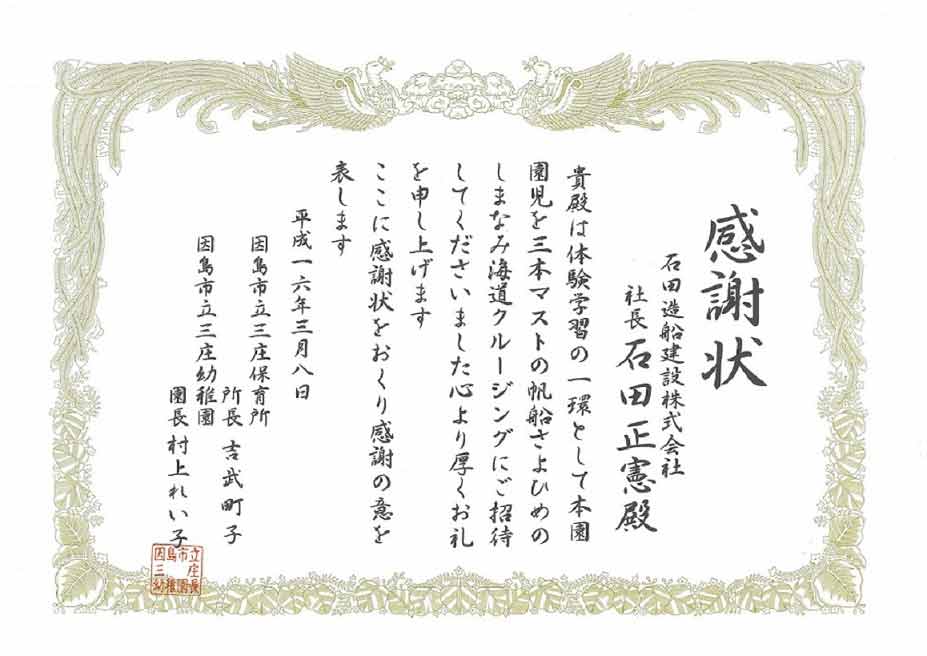 感謝状
石田造船建設株式会社
社長 石田正憲殿
貴殿は体験学習の一環として本園
園児を三本マストの帆船さよひめの
しまなみ海道クルージングにご招待
してくださいました心より厚くお礼
を申し上げます
ここに感謝状をおくり感謝の意を
表します
平成一六年三月八日
因島市立三庄保育所
所長 吉武町子
因島市立三庄幼稚園
園長 村上れい子
因島市立
三庄
幼稚園長